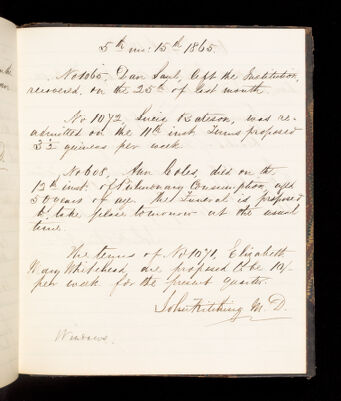 5th mo: 15th 1865
No 1065, Dan Saul, left the Institution,
recovered, on the 25th of last month.
No 1072, Lucia Bateson, was re-
admitted on the 11th inst. Terms proposed
3½ guineas per week
No 608, Ann Coles, died on the
12th inst. of Pulmonary Consumption, aged
50 years of age. Her Funeral is proposed
to take place tomorrow at the usual
time.
The terms of No 1071, Elizabeth
Whitehead, are proposed to be 10/-
per week for the present quarter.
John Kitching M.D.
Windows.